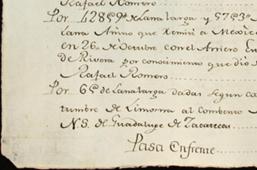 Rafael Romero
Por 428 @ de Lana larga y 575 @
lana Anino que remiti a Mexico
en 26 de Octubre con el Arriero
de Rivera por conocimiento que dio
Rafael Romero
Por 6 @ de Lana larga dadas segun cos
tumbre de Limosna al combento
N. S. de Guadalupe de Zacatecas
Pasa Enfrente